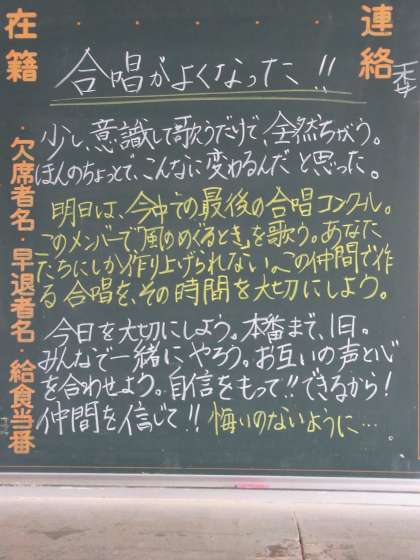 合唱がよくなった!!
少し、意識して歌うだけで、全然ちがう。
ほんのちょっとで、こんなに変わるんだと思った。
明日は、今年での最後の合唱コンクール。
このメンバーで「風のめぐるとき」を歌う。あなた
たちにしか作り上げられない、この仲間で作
る合唱を、その時間を大切にしよう。
今日を大切にしよう。本番まで、1日。
みんなで一緒にやろう。お互いの声と心
を合わせよう。自信をもって!!できるから!
仲間を信じて!!悔いのないように…
連絡
在籍
・欠席者名・早退者名・給食当番